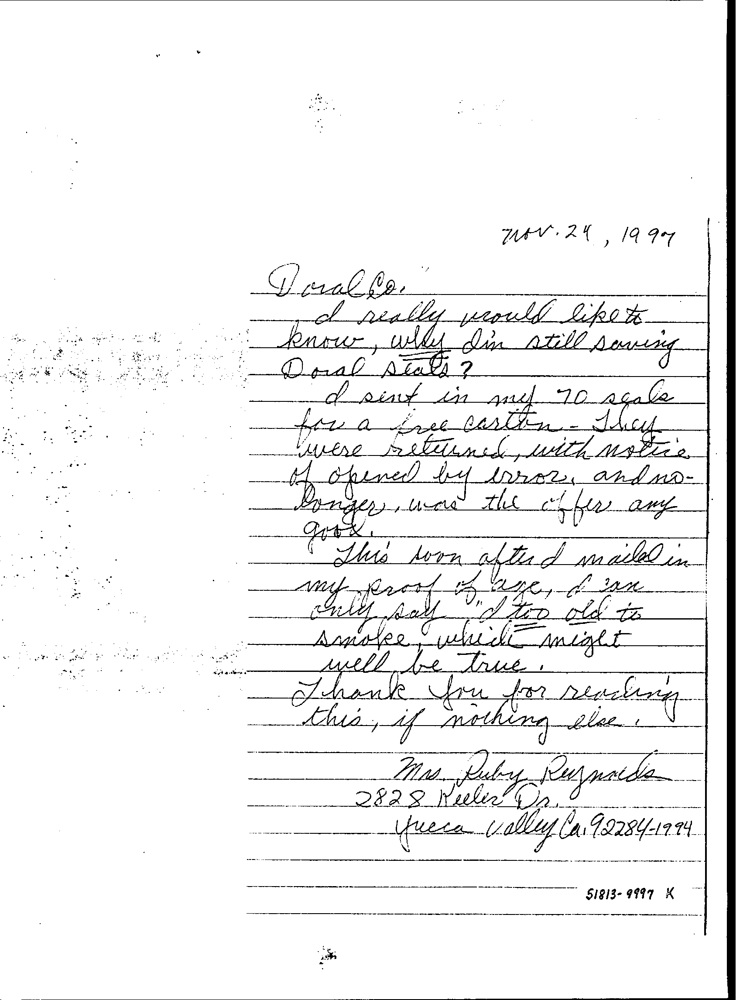 Nov. 24, 1997
Doral Co.
I really would like to
know, why I'm still saving
Doral seals?
I sent in my 70 seals
for a free carton - They
were returned, with notice
of opened by error, and no-
longer, was the offer any
good.
This soon after I mailed in
my proof of age, I can
only say "I too old to
smoke, which might
well be true.
Thank you for reading
this, if nothing else.
Mrs Ruby Reynolds
2828 Keeler Dr.
Yucca Valley Ca. 92284-1994
51813-9997 K